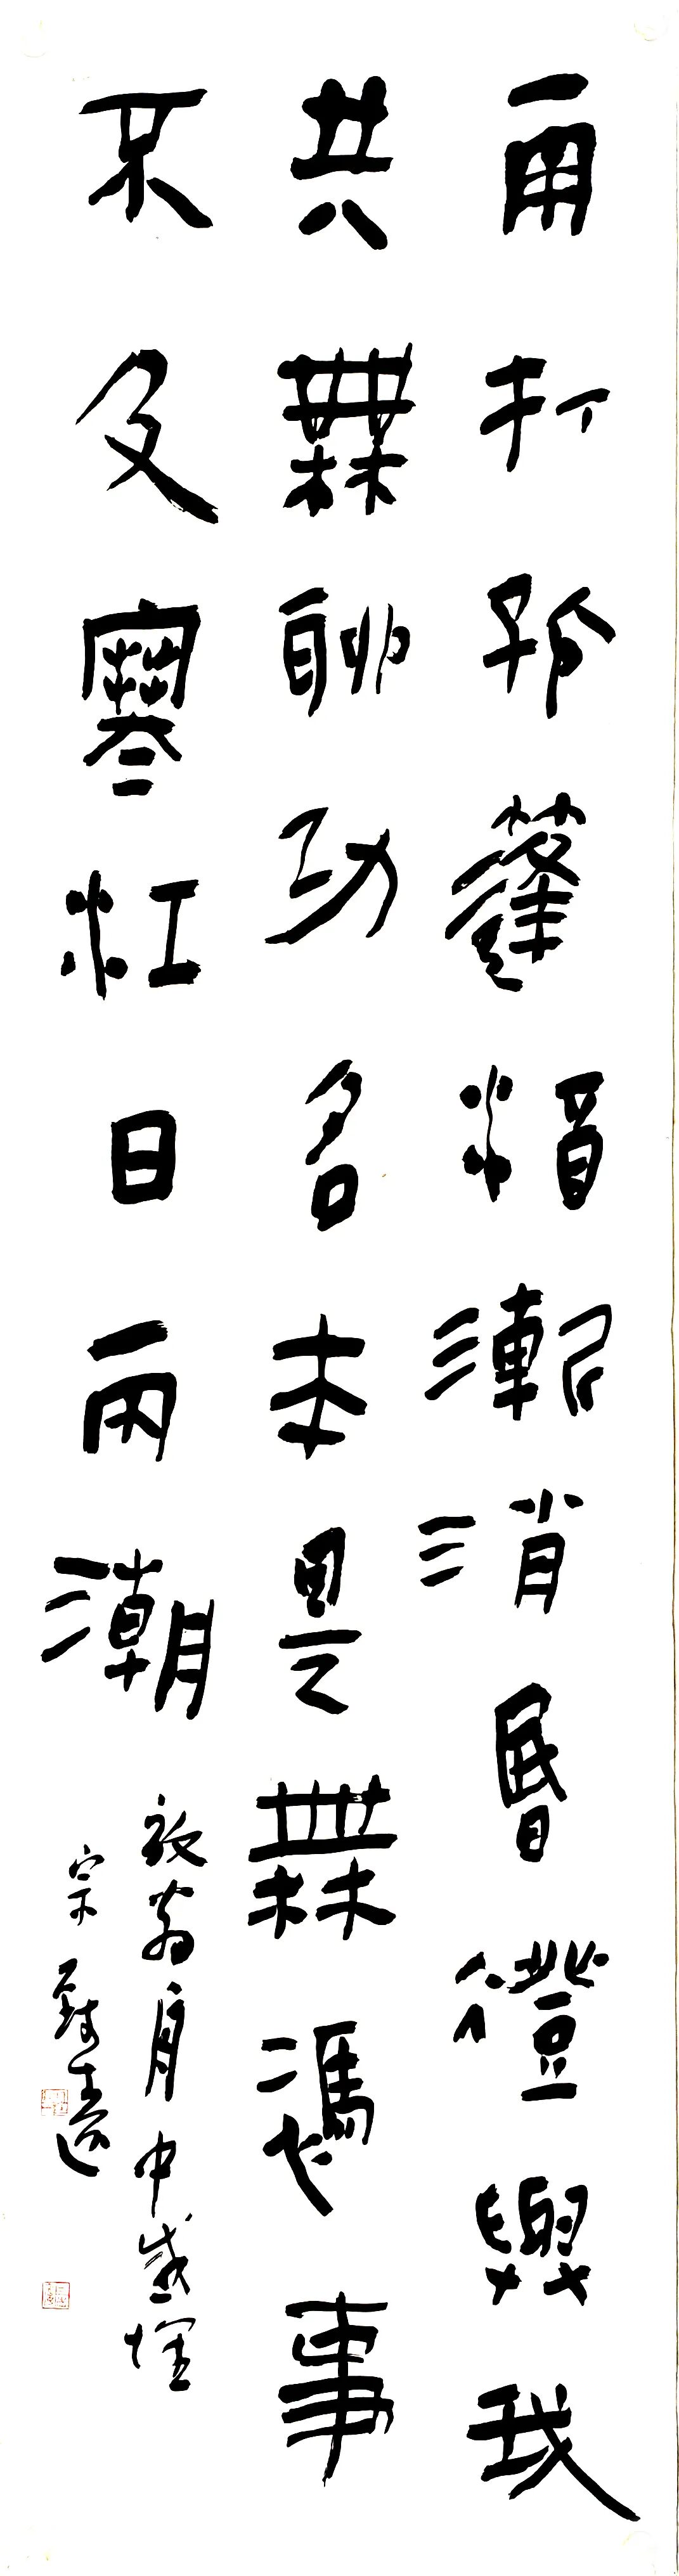 雨打孤篷酒漸消昏燈與我
共無聊功名本是無憑事
不及寒江日兩潮
放翁舟中感懷
宗